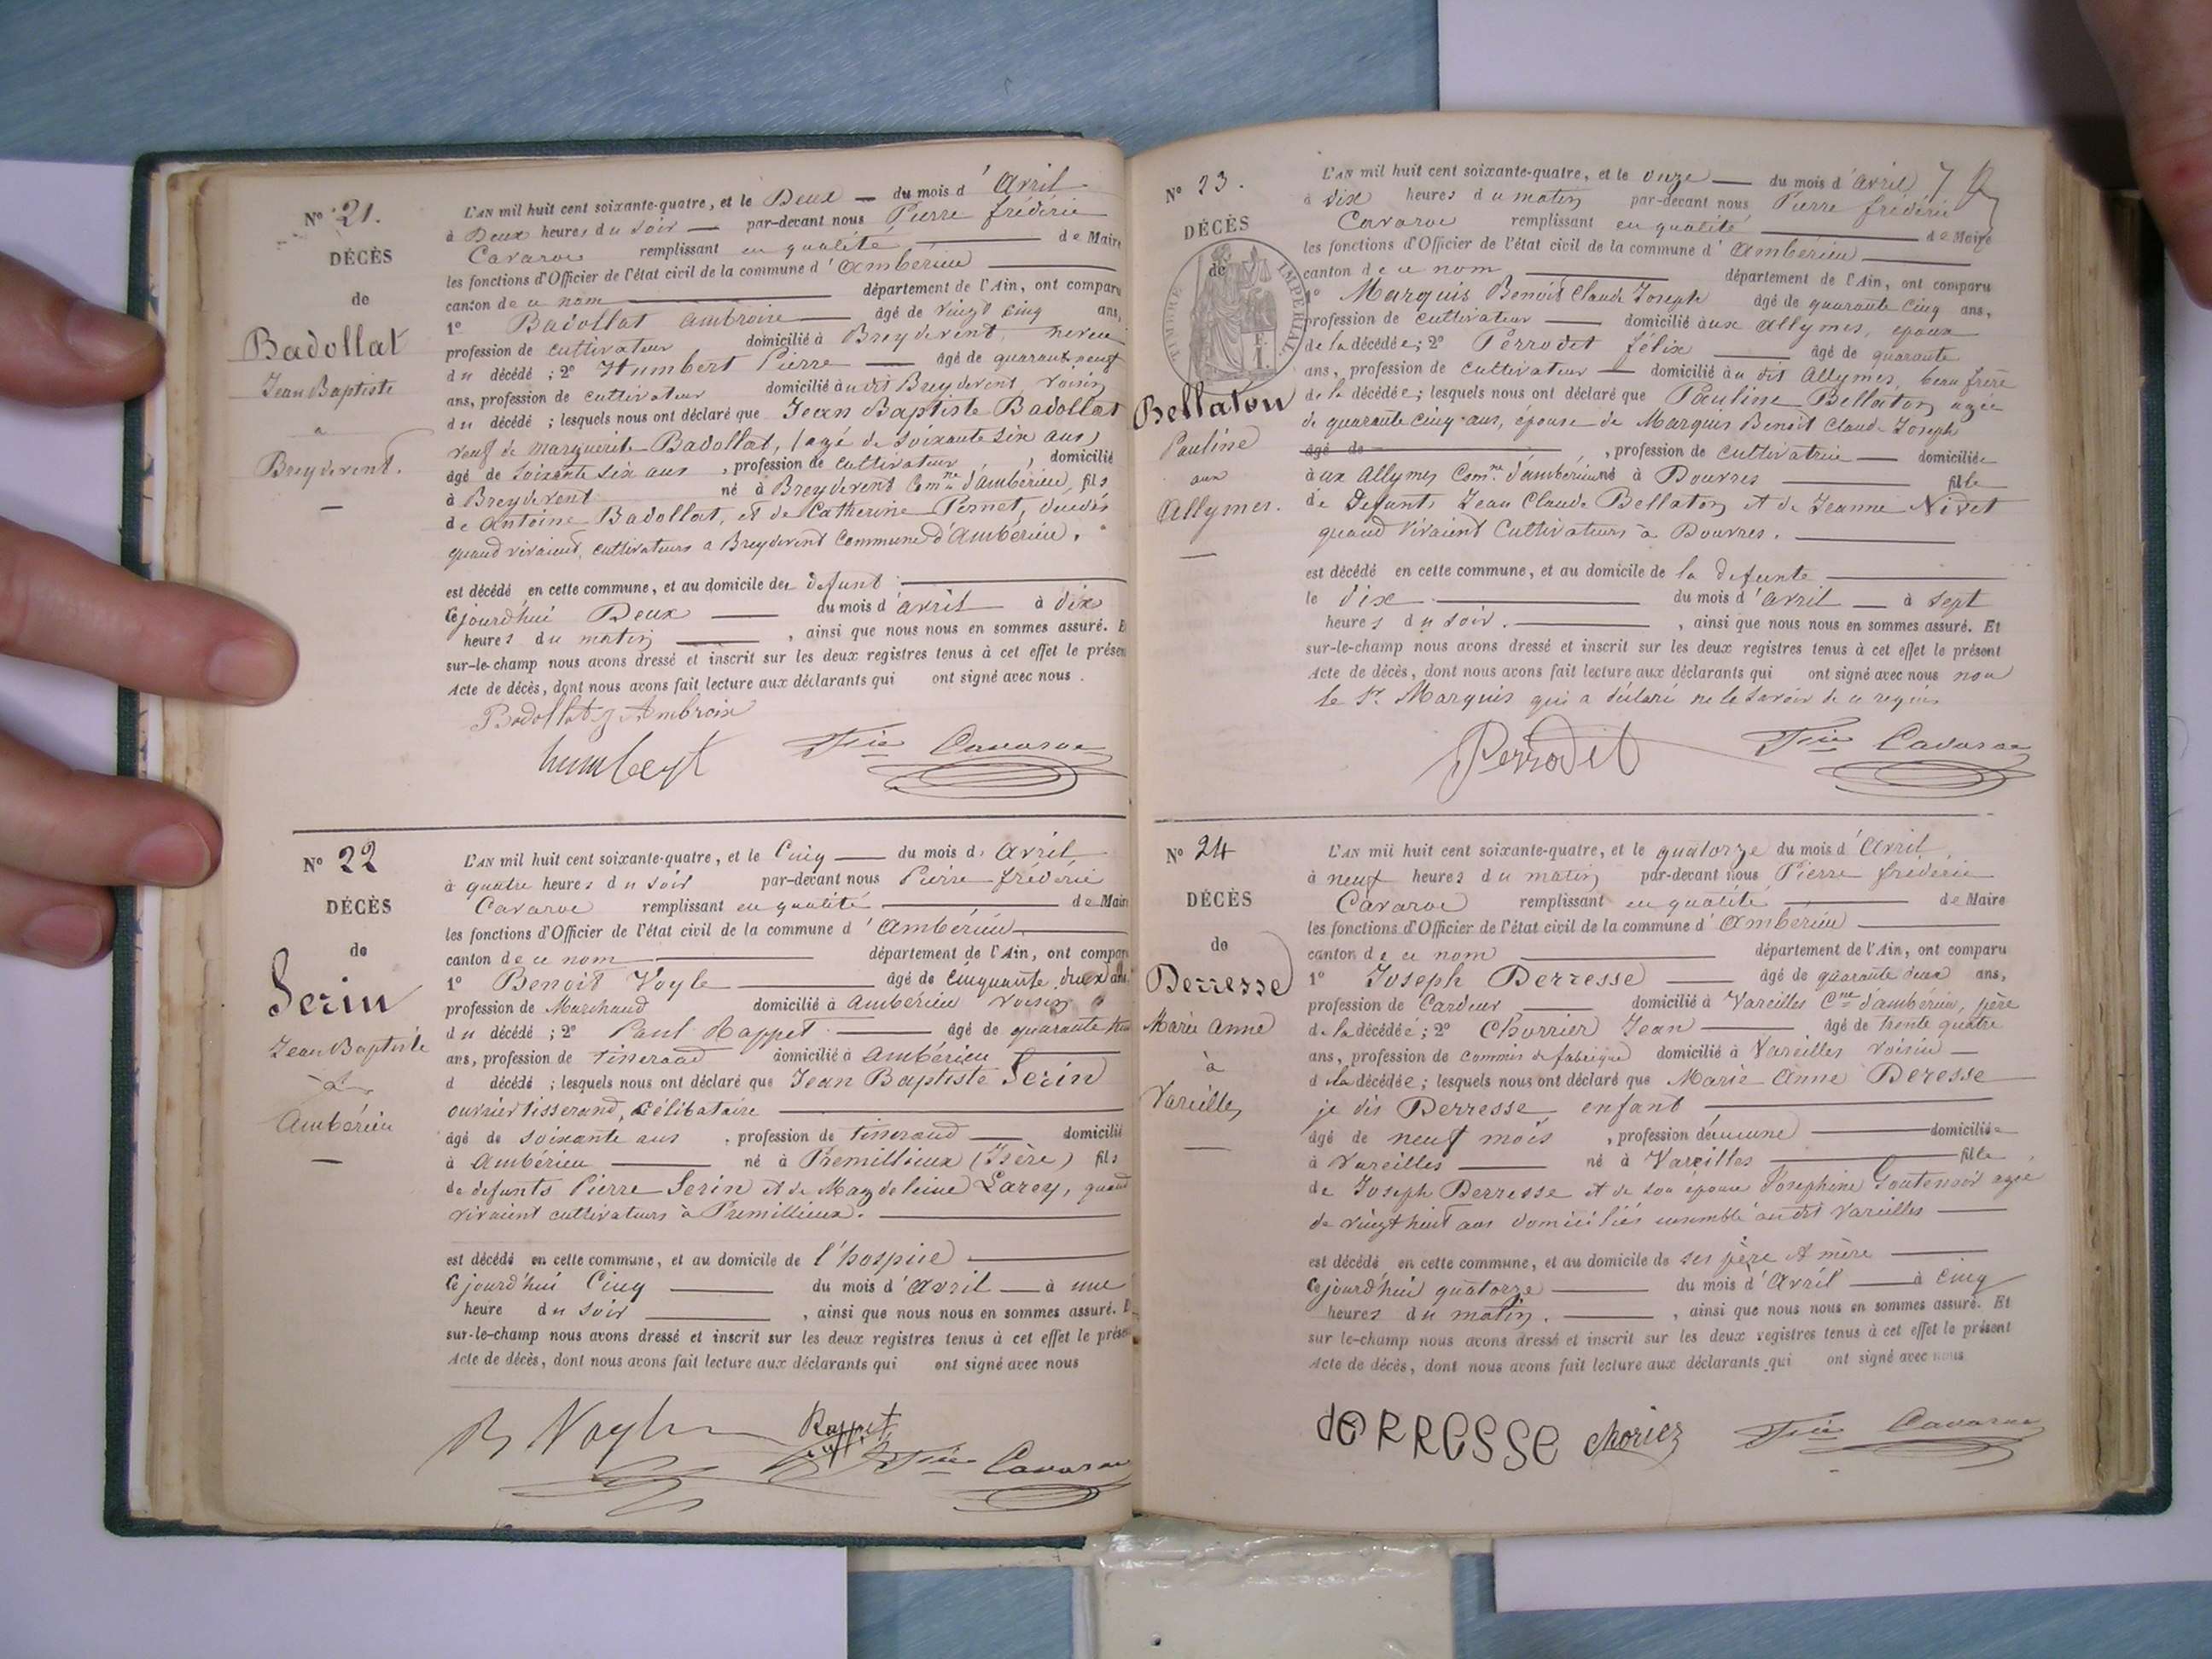 N° 21.
DÉCÈS
de
Badollat
Jean Baptiste
a
Breydevent.
L'AN mil huit cent soixante-quatre, et le Deux du mois d'Avril
à Deux heures du soir par-devant nous Pierre frédéric
Cavaroc remplissant en qualité de Maire
les fonctions d'Officier de l'état civil de la commune d'Ambérieu
canton de ce nom département de l'Ain, ont comparu
1° Badollat Ambroise âgé de vingt cinq ans,
profession de cultivateur domicilié à Breydevent, neveu
du décédé ; 2° Humbert Pierre âgé de quarante neuf
ans, profession de cultivateur domicilié au dit Breydevent, voisin
du décédé ; lesquels nous ont déclaré que Jean Baptiste Badollat
veuf de Marguerite Badollat, (agé de soixante six ans)
âgé de soixante six ans , profession de cultivateur , domicilié
à Breydevent né à Breydevent Comne d'ambérieu, fils
de Antoine Badollat, et de Catherine Pernet, décédés
quand vivaient, cultivateurs a Breydevent Commune d'Ambérieu.
est décédé en cette commune, et au domicile de defunt
Cejourd'hui Deux du mois d'avril à dix
heures du matin , ainsi que nous nous en sommes assuré. E
sur-le-champ nous avons dressé et inscrit sur les deux registres tenus à cet effet le présen
Acte de décès, dont nous avons fait lecture aux déclarants qui ont signé avec nous .
Badollat Ambroise
humbert Fric Cavaroc
N° 22
DÉCÈS
de
Serin
Jean Baptiste
à
Ambérieu
L'AN mil huit cent soixante-quatre, et le Cinq du mois d'Avril
à quatre heures du soir par-devant nous Pierre frédéric
Cavaroc remplissant en qualité de Maire
les fonctions d'Officier de l'état civil de la commune d'Ambérieu
canton de ce nom département de l'Ain, ont comparu
1° Benoit Vogle âgé de cinquante deux ans
profession de Marchand domicilié à Ambérieu voisin
du décédé ; 2° Paul Rappet âgé de quarante
ans, profession de tisserand domicilié à Ambérieu
d décédé ; lesquels nous ont déclaré que Jean Baptiste Serin
ouvrier tisserand, célibataire
âgé de soixante ans , profession de tisserand domicilié
à Ambérieu né à Premillieux (Isère) fils
de defunts Pierre Serin et de Magdeleine Larey, quand
vivaient cultivateurs à Premillieux.
est décédé en cette commune, et au domicile de l'hospice
Cejourd'hui Cinq du mois d'Avril à une
heure du soir , ainsi que nous nous en sommes assuré. E
sur-le-champ nous avons dressé et inscrit sur les deux registres tenus à cet effet le présen
Acte de décès, dont nous avons fait lecture aux déclarants qui ont signé avec nous
B Vogle Rappet Fric Cavaroc
N° 23.
DÉCÈS
de
TIMBRE IMPÉRIAL
Bellaton
Pauline
aux
Allymes.
L'AN mil huit cent soixante-quatre, et le onze du mois d'avril
à dix heures du matin par-devant nous Pierre frédéric
Cavaroc remplissant en qualité de Maire
les fonctions d'Officier de l'état civil de la commune d'Ambérieu
canton de ce nom département de l'Ain, ont comparu
1° Marquis Benoit Claude Joseph âgé de quarante cinq ans,
profession de cultivateur domicilié aux Allymes, époux
de la décédée ; 2° Perrodet félix âgé de quarante
ans, profession de cultivateur domicilié au dit Allymes, beau frère
de la décédée ; lesquels nous ont déclaré que Pauline Bellaton agée
de quarante cinq ans, épouse de Marquis Benoit Claude Joseph
âgé de , profession de cultivatrice domiciliée
à ax Allymes Comne d'ambérieu né à Douvres fille
de Defunts Jean Claude Bellaton et de Jeanne Nivet
quand vivaient Cultivateurs à Douvres.
est décédé en cette commune, et au domicile de la defunte
le dix du mois d'avril à sept
heures du soir. , ainsi que nous nous en sommes assuré. Et
sur-le-champ nous avons dressé et inscrit sur les deux registres tenus à cet effet le présent
Acte de décès, dont nous avons fait lecture aux déclarants qui ont signé avec nous non
le Sr Marquis qui a déclaré ne le savoir de ce requis
Perrodet Fric Cavaroc
N° 24
DÉCÈS
de
Derresse
Marie Anne
à
Vareilles
L'AN mil huit cent soixante-quatre, et le quatorze du mois d'Avril
à neuf heures du matin par-devant nous Pierre frédéric
Cavaroc remplissant en qualité de Maire
les fonctions d'Officier de l'état civil de la commune d'Ambérieu
canton de ce nom département de l'Ain, ont comparu
1° Joseph Derresse âgé de quarante deux ans,
profession de Cardeur domicilié à Vareilles Cne d'ambérieu, père
de la décédée ; 2° Chorrier Jean âgé de trente quatre
ans, profession de commis de fabrique domicilié à Vareilles voisin
d la décédée ; lesquels nous ont déclaré que Marie Anne Deresse
je dis Derresse enfant
âgé de neuf mois , profession d'aucune domiciliée
à Vareilles né à Vareilles fille
de Joseph Derresse et de son épouse Josephine agée
de vingt huit ans domiciliés ensemble au dit Vareilles
est décédé en cette commune, et au domicile de ses père et mère
Cejourd'hui quatorze du mois d'Avril à cinq
heures du matin. , ainsi que nous nous en sommes assuré. Et
sur le-champ nous avons dressé et inscrit sur les deux registres tenus à cet effet le présent
Acte de décès, dont nous avons fait lecture aux déclarants qui ont signé avec nous
deRReSSe choriez Fric Cavaroc